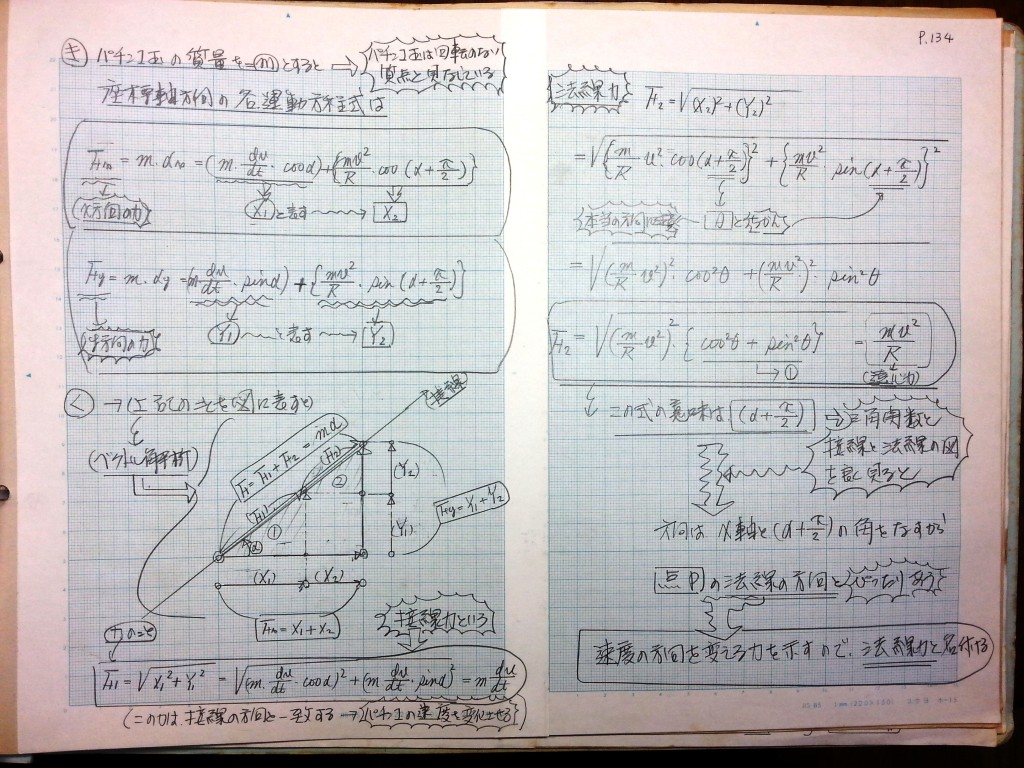 P.134
き パチンコ玉の質量を=mとすると ⇒ パチンコ玉は回転のない
質点と見なしている
座標軸方向の各運動方程式は
Fx = m・αx = (m・dv/dt・cosα) + {mv²/R・cos(α+π/2)}
x方向の力 X₁と表す X₂
Fy = m・αy = (m・dv/dt・sinα) + {mv²/R・sin(α+π/2)}
y方向の力 Y₁ と表す Y₂
く → (上記のことを図に表すと)
(ベクトル解析)
接線
F = F₁ + F₂ = mα
(F₁) (F₂)
① ②
α
(Y₂)
(Y₁)
Fy = Y₁ + Y₂
(X₁) (X₂)
Fx = X₁ + X₂
接線力という
力のこと
F₁ = √X₁² + Y₁² = √(m・dv/dt・cosα)² + (m・dv/dt・sinα)² = m dv/dt
(この力は、接線の方向と一致する → パチンコ玉の速度を変化させる)
法線力 F₂ = √(X₂)² + (Y₂)²
= √{m/R・v²・cos(α+π/2)}² + {mv²/R・sin(α+π/2)}²
θ と
= √(m/R v²)²・cos²θ + (mv²/R)²・sin²θ
F₂ = √(m/R v²)²・{cos²θ + sin²θ} = mv²/R
→ ① (遠心力)
この式の意味は (α+π/2) ⇒ 三角関数と
接線と法線の図
を良く見ると
方向は x軸と(α+π/2)の角をなすから
点Pの法線の方向とぴったりあう
速度の方向を変える力を示すので、法線力と名付ける